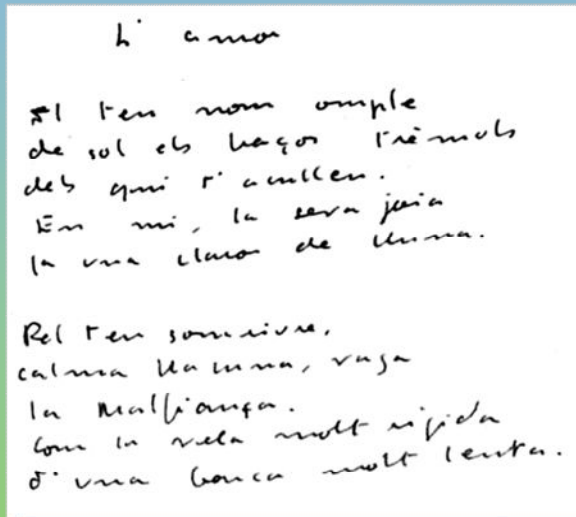 L'amor
El teu nom omple
de sol els braços trèmols
dels qui t'acullen.
En mi, la seva joia
fa una claror de lluna.
Pel teu somriure,
calma llacuna, vaga
la malfiança.
Com la vela molt rígida
d'una barca molt lenta.